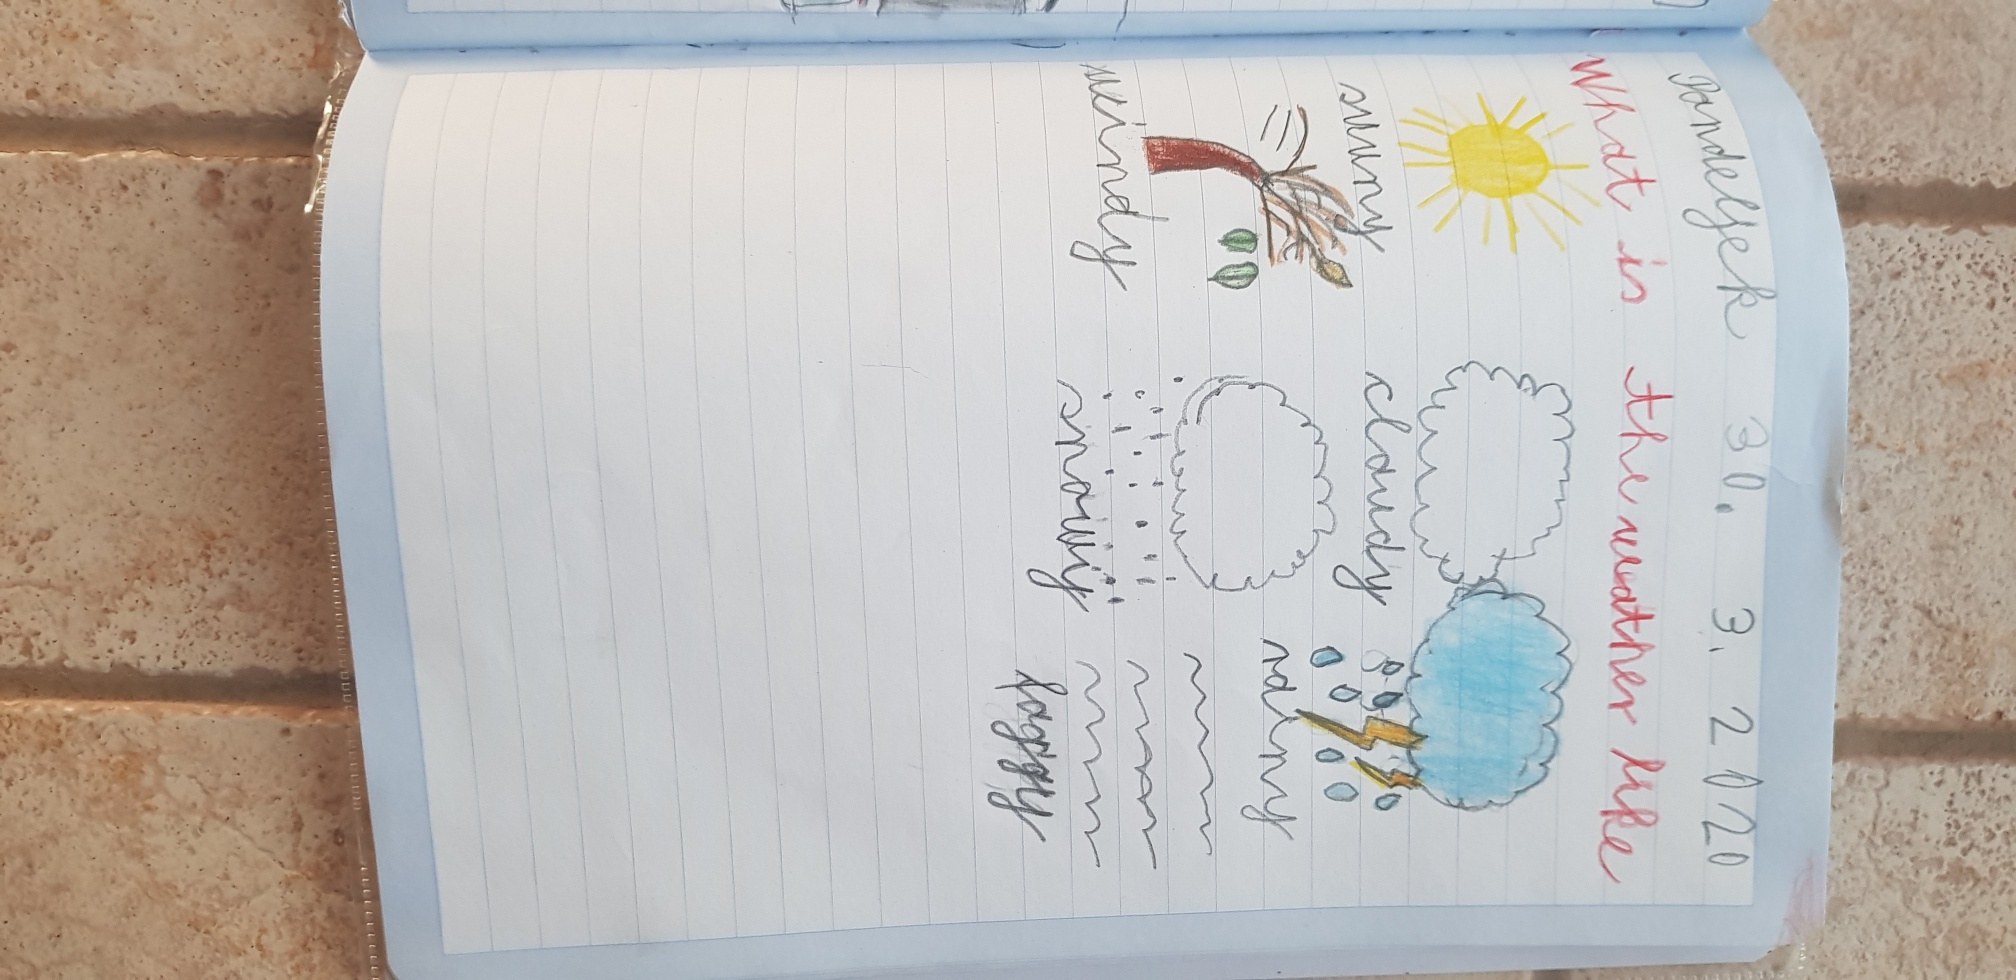 Pondeljek 30. 3. 2020
What is the weather like
sunny cloudy rainy
windy snowy foggy